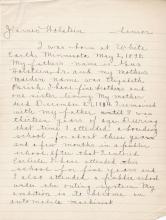 James Holstein Senior
I was born at White
Earth, Minnesota May 2, 1892
My father's name is Chas
Holstein Sr. and my mothers
maiden name was Elizabeth
Parish. I have five brothers and
one sister living. My mother
died December 17, 1904. I remained
with my father until I was
thirteen years of age. During
that time I attended a boarding
school for about three years
and a few months in a public
school. After that I entered
Carlisle. I have attended this
school for five years and
I also attended a public school
while the outing system. My
ambition is to become an
auto mobile machinist